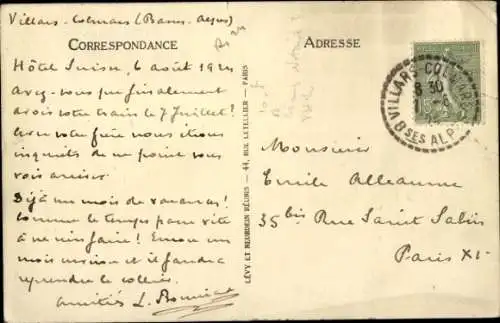 Villars-Colmars (Basses-Alpes)
CORRESPONDANCE
ADRESSE
Hôtel Suisse, 6 août 1924
Avez-vous pu finalement
avoir votre train le 7 Juillet?
votre frère nous étions
inquiets de ne point vous
voir arriver.
Déjà un mois de vacances!
Comme le temps passe vite
à ne rien faire! Encore un
mois moins et il faudra
reprendre le collier.
Amitiés L.
LÉVY ET NEURDEIN RÉUNIS - 44, RUE LETELLIER - PARIS
VILLARS-COLMARS
8 30
BSES ALPES
15
Monsieur
Emile Alleaume
35bis Rue Saint Sabin
Paris XI